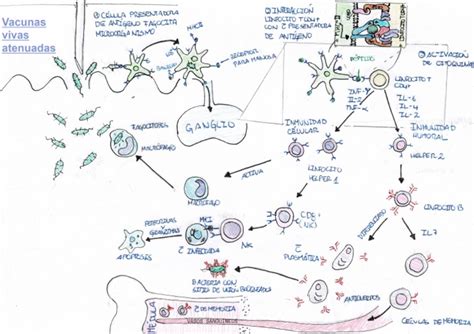 Vacunas
vivas
atenuadas
① CÉLULA PRESENTADORA
DE ANTÍGENO FAGOCITA
MICROORGANISMO
MHCII
RECEPTOR
PARA MANOSA
② INTERACCIÓN
LINFOCITO T CD4+
CON C PRESENTADORA
DE ANTÍGENO
③ ACTIVACIÓN
DE CITOQUINAS
PÉPTIDO
LINFOCITO T
CD4+
INF-γ
IL-2
TNF-α
IL-5
IL-4
IL-2
GANGLIO
INMUNIDAD
CELULAR
INMUNIDAD
HUMORAL
FAGOCITOSIS
MACRÓFAGO
ACTIVA
LINFOCITO
HELPER 1
HELPER 2
MACRÓFAGO
LINFOCITO B
PERFORINAS
GRANZIMAS
MHCI
C INFECTADA
NK
APOPTOSIS
C
PLASMÁTICA
IL7
BACTERIA CON
SITIOS DE UNIÓN BLOQUEADOS
ANTICUERPOS
MÉDULA
C DE MEMORIA
VASOS SANGUÍNEOS
CÉLULA DE MEMORIA